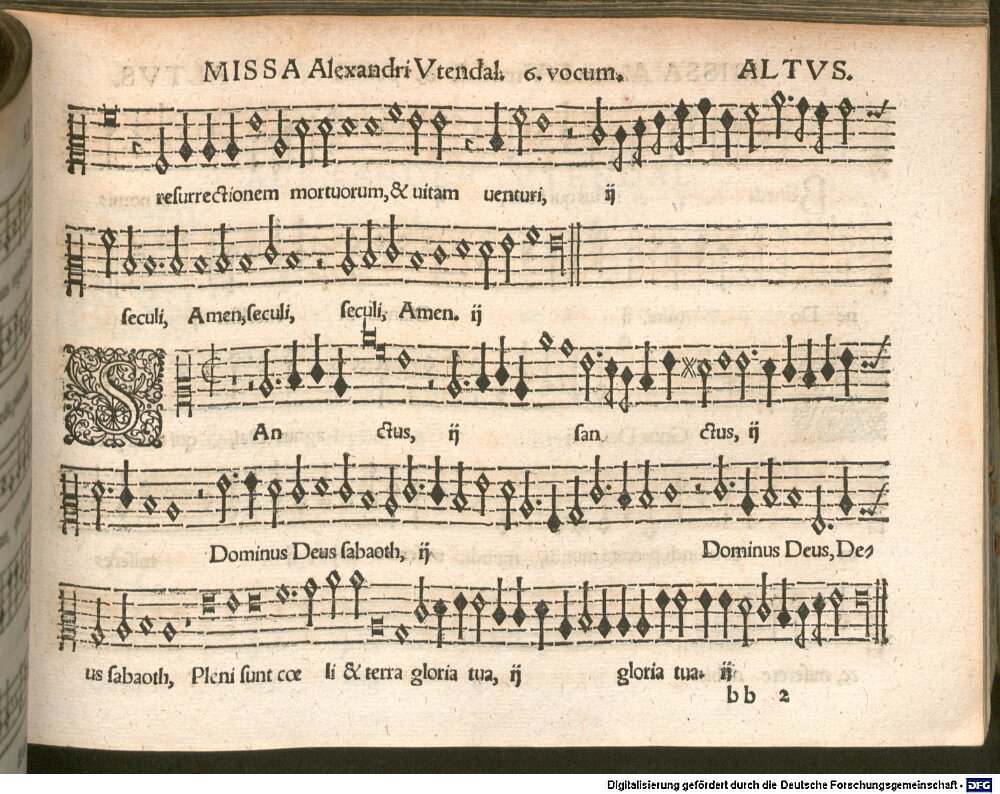 MISSA Alexandri Vtendal. 6. vocum. ALTVS.
resurrectionem mortuorum, & uitam uenturi, ij
seculi, Amen, seculi, seculi, Amen. ij
SAn ctus, ij san ctus, ij
Dominus Deus sabaoth, ij Dominus Deus, De-
us sabaoth, Pleni sunt cœ li & terra gloria tua, ij gloria tua. ij
bb 2
Digitalisierung gefördert durch die Deutsche Forschungsgemeinschaft - DFG